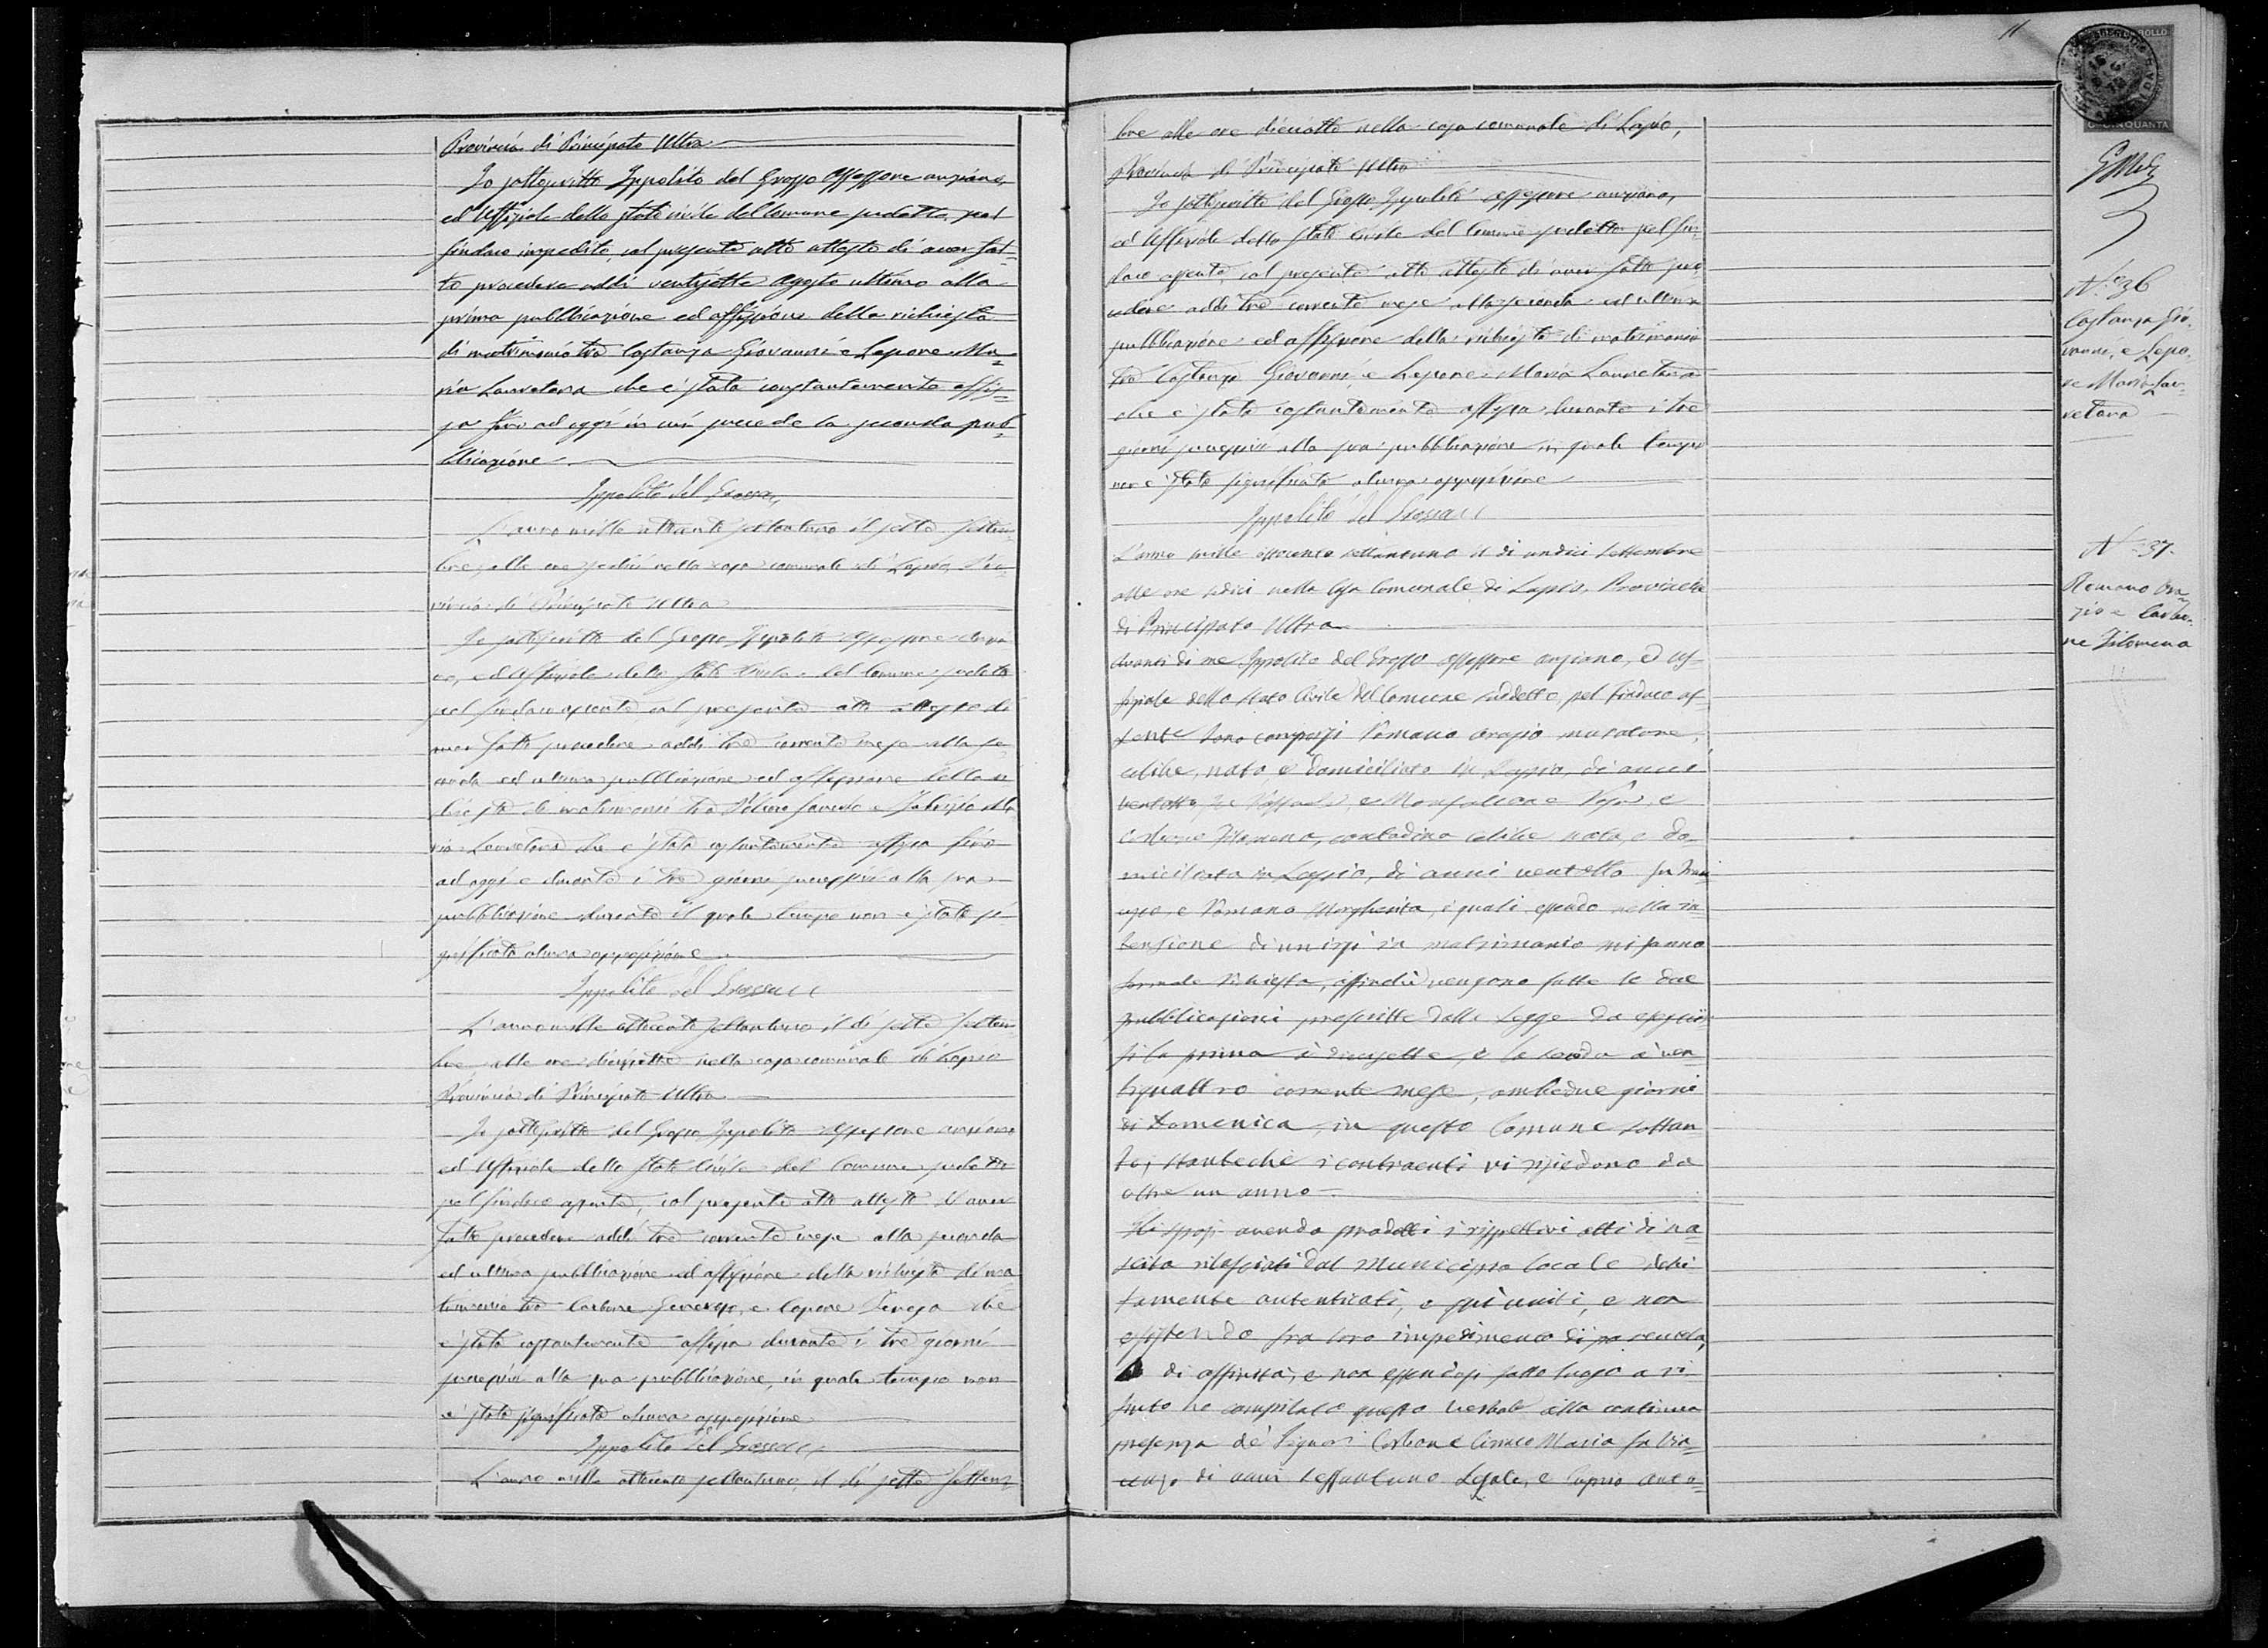 Provincia di Principato Ultra
Io sottoscritto Ippolito del Grosso Assessore anziano,
ed Uffiziale dello Stato civile del Comune sudetto, pel
Sindaco impedito, col presente atto attesto di aver fat=
to procedere addì ventisette Agosto ultimo alla
prima pubblicazione ed affissione della richiesta
di matrimonio tra Costanza Giovanni e Lepore Ma=
ria Lauretana che è stata constantemente affis=
sa fino ad oggi in cui precede la seconda pub=
blicazione
Ippolito del Grosso
L'anno mille ottocento settantuno il sette Settem=
bre, alle ore sedici nella casa comunale di Lapio, Pro=
vincia di Principato Ultra
Io sottoscritto del Grosso Ippolito Assessore anzia=
no, ed Uffiziale dello Stato Civile del Comune sudetto
pel Sindaco assente col presente atto attesto di
aver fatto procedere addì tre corrente mese alla se=
conda ed ultima pubblicazione ed affissione della ri=
chiesta di matrimonio tra e Ma=
ria Lauretana che è stata costantemente affissa fino
ad oggi e durante i tre giorni successivi alla sua
pubblicazione durante il quale tempo non è stata si=
gnificata alcuna opposizione
Ippolito del Grosso
L'anno mille ottocento settantuno il dì sette Settem=
bre alle ore diciassette nella casa comunale di Lapio
Provincia di Principato Ultra
Io sottoscritto del Grosso Ippolito Assessore anziano
ed Uffiziale dello Stato Civile del Comune sudetto
pel Sindaco assente, col presente atto attesto d'aver
fatto procedere addì tre corrente mese alla seconda
ed ultima pubblicazione ed affissione della richiesta di ma
trimonio tra Carbone e Lepore Teresa che
è stata costantemente affissa durante i tre giorni
successivi alla sua pubblicazione, in quale tempo non
è stata significata alcuna opposizione
Ippolito del Grosso
L'anno mille ottocento settantuno, il dì sette Settem=
bre alle ore dieciotto nella casa comunale di Lapio,
Provincia di Principato Ultra
Io sottoscritto del Grosso Ippolito assessore anziano,
ed Uffiziale dello Stato Civile del Comune sudetto pel Sin=
daco assente, col presente atto attesto di aver fatto pro=
cedere addì tre corrente mese alla seconda ed ultima
pubblicazione ed affissione della richiesta di matrimonio
tra Costanza Giovanni e Lepore Maria Lauretana
che è stata costantemente affissa durante i tre
giorni successivi alla sua pubblicazione in quale tempo
non è stata significata alcuna opposizione
Ippolito del Grosso
L'anno mille ottocento settantuno il dì undici Settembre
alle ore sedici nella Casa Comunale di Lapio, Provincia
di Principato Ultra
Avanti di me Ippolito del Grosso Assessore anziano, ed Uf=
fiziale dello Stato Civile del Comune suddetto, pel Sindaco as=
sente sono comparsi Romano Orazio muratore,
celibe, nato, e domiciliato in Lapio, di anni
ventotto, e e
Carbone Filomena, contadina celibe nata, e do=
miciliata in Lapio, di anni ventotto fu
e Romano Margherita, i quali essendo nella in=
tenzione di unirsi in matrimonio mi fanno
formale richiesta, affinchè vengano fatte le due
pubblicazioni prescritte dalla Legge da eseguir=
si la prima a' diecisette, e la seconda a' ven=
tiquattro corrente mese, ambedue giorni
di Domenica, in questo Comune soltan=
to, stantechè i contraenti vi risiedono da
oltre un anno
Gli sposi avendo prodotti i rispettivi atti di na=
scita rilasciati dal Municipio locale debi=
tamente autenticati, e quì uniti, e non
esistendo fra loro impedimento di parentela,
di affinità, e non essendosi fatto luogo a ri=
fiuto ho compilato questo verbale alla continua
presenza de' Signori Carbone Ciriaco Maria fu Vin=
cenzo di anni sessantuno Legale, e Anto=
11
BOLLO
CINQUANTA
N.º 36
Costanza Gio=
vanni, e Lepo=
re Maria Lau=
retana
N.º 37.
Romano Ora=
zio e Carbo=
ne Filomena